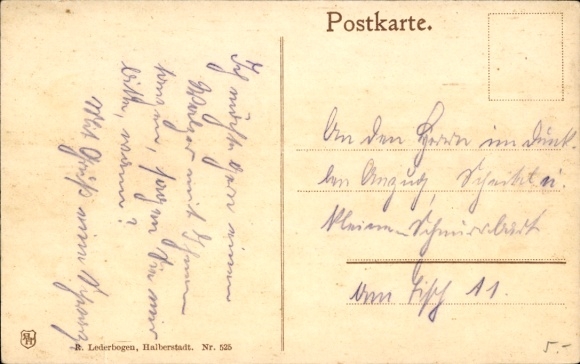 Postkarte.
Ich möchte gern einen
Walzer mit Ihnen
tanzen, sagen Sie mir
bitte, wann?
Mit Gruß eine
An den Herrn im dunk-
len Anzug, Scheitel u.
kleinen Schnurrbart
am Tisch 11.
R. Lederbogen, Halberstadt. Nr. 525
5.-